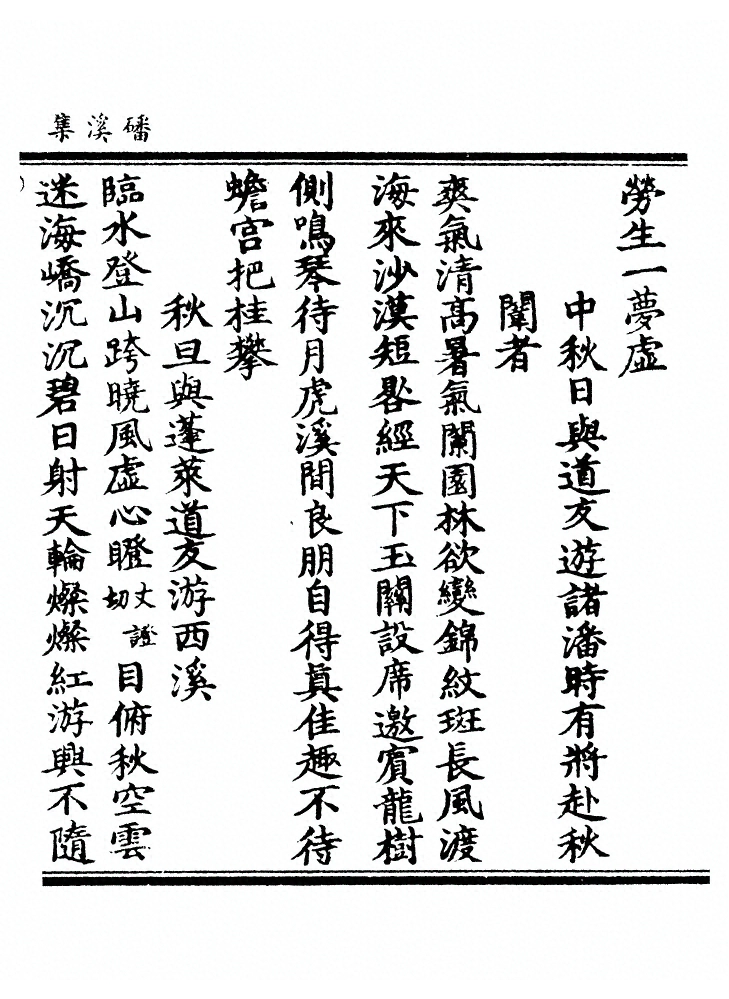 磻溪集
勞生一夢虛
中秋日與道友遊諸潘時有將赴秋
闈者
爽氣清高暑氣闌園林欲變錦紋斑長風渡
海來沙漠短晷經天下玉關設席邀賓龍樹
側鳴琴待月虎溪間良朋自得眞佳趣不待
蟾宮把桂攀
秋旦與蓬萊道友游西溪
臨水登山跨曉風虛心瞪丈證切目俯秋空雲
迷海嶠沉沉碧日射天輪燦燦紅游興不隨